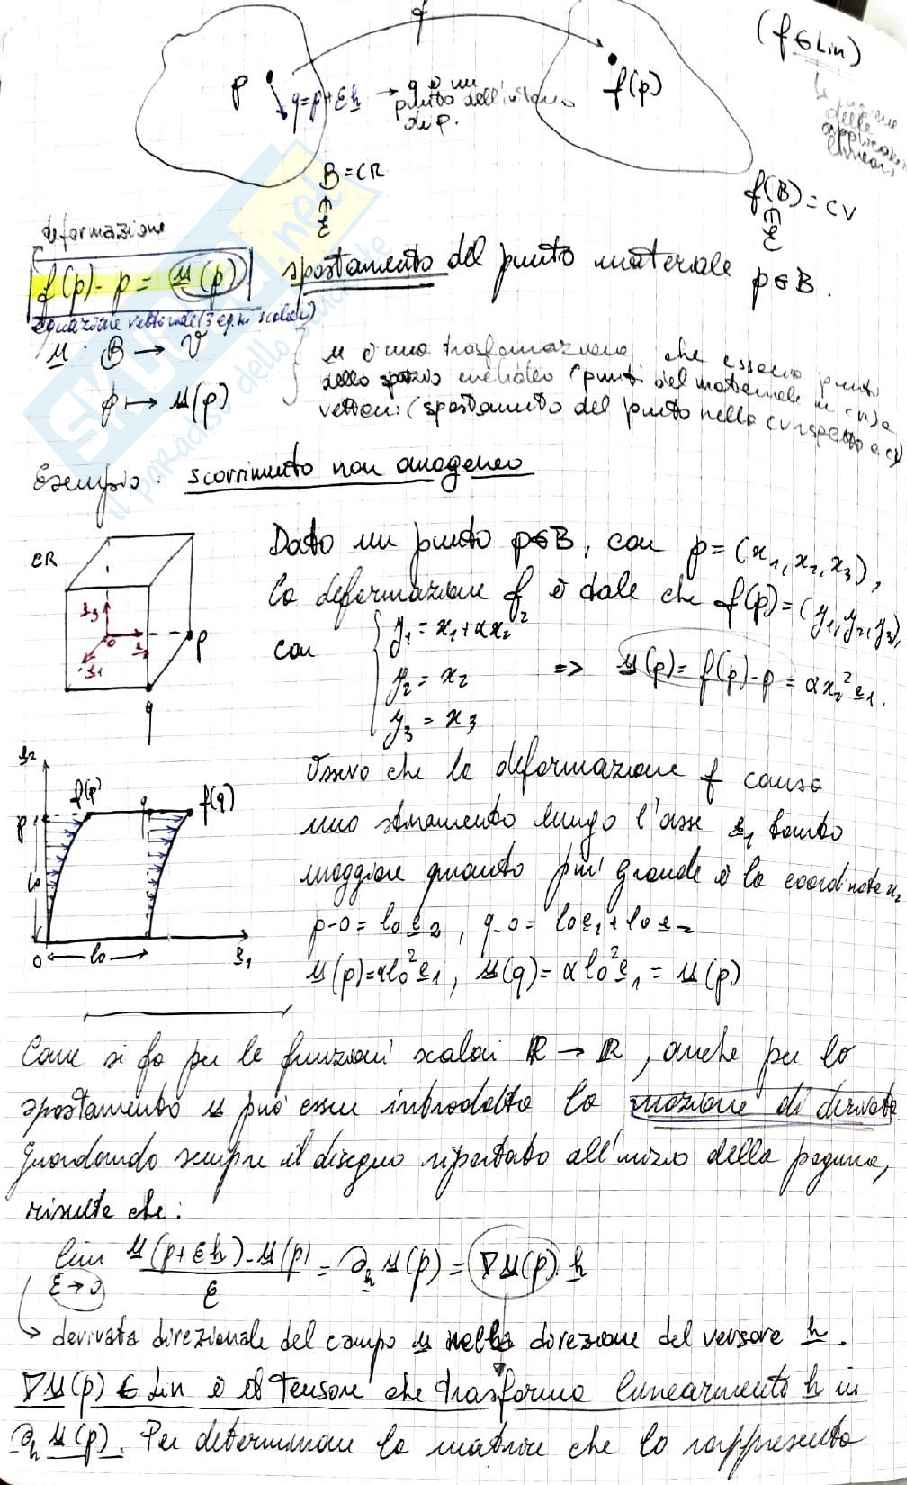 f
(f ∈ Lin)
p
q=p+εh → q è un
punto dell'intorno
di p.
f(p)
delle
applicazioni
lineari
B=CR
ε
f(B)=CV
ε
deformazione
f(p)-p = u(p) spostamento del punto materiale p∈B.
equazione vettoriale (3 eq.ni scalari)
u: B → V
p ↦ u(p)
u è una trasformazione che associa punti
dello spazio euclideo (punti del materiale in CR) a
vettori (spostamento del punto nella CV rispetto a CR)
Esempio: scorrimento non omogeneo
CR
e3
o
e2
e1
p
q
Dato un punto p∈B, con p=(x1,x2,x3),
la deformazione f è tale che f(p)=(y1,y2,y3),
con
y1=x1+αx2²
y2=x2
y3=x3
=> u(p)=f(p)-p=αx2²e1.
e2
p
f(p)
q
f(q)
lo
o
lo
e1
Osservo che la deformazione f causa
uno stiramento lungo l'asse e1 tanto
maggiore quanto più grande è la coordinata x2
p-o=lo e2, q-o=lo e1+lo e2
u(p)=αlo²e1, u(q)=αlo²e1=u(p)
Come si fa per le funzioni scalari ℝ → ℝ, anche per lo
spostamento u può esser introdotta la nozione di derivata
guardando sempre il disegno riportato all'inizio della pagina,
risulta che:
lim u(p+εh)-u(p) = ∂h u(p) = ∇u(p)·h
ε→0 ε
↳ derivata direzionale del campo u nella direzione del versore h.
∇u(p) ∈ Lin è il Tensore che trasforma linearmente h in
∂h u(p). Per determinare la matrice che lo rappresenta
SKUOLA.net
il paradiso dello studente